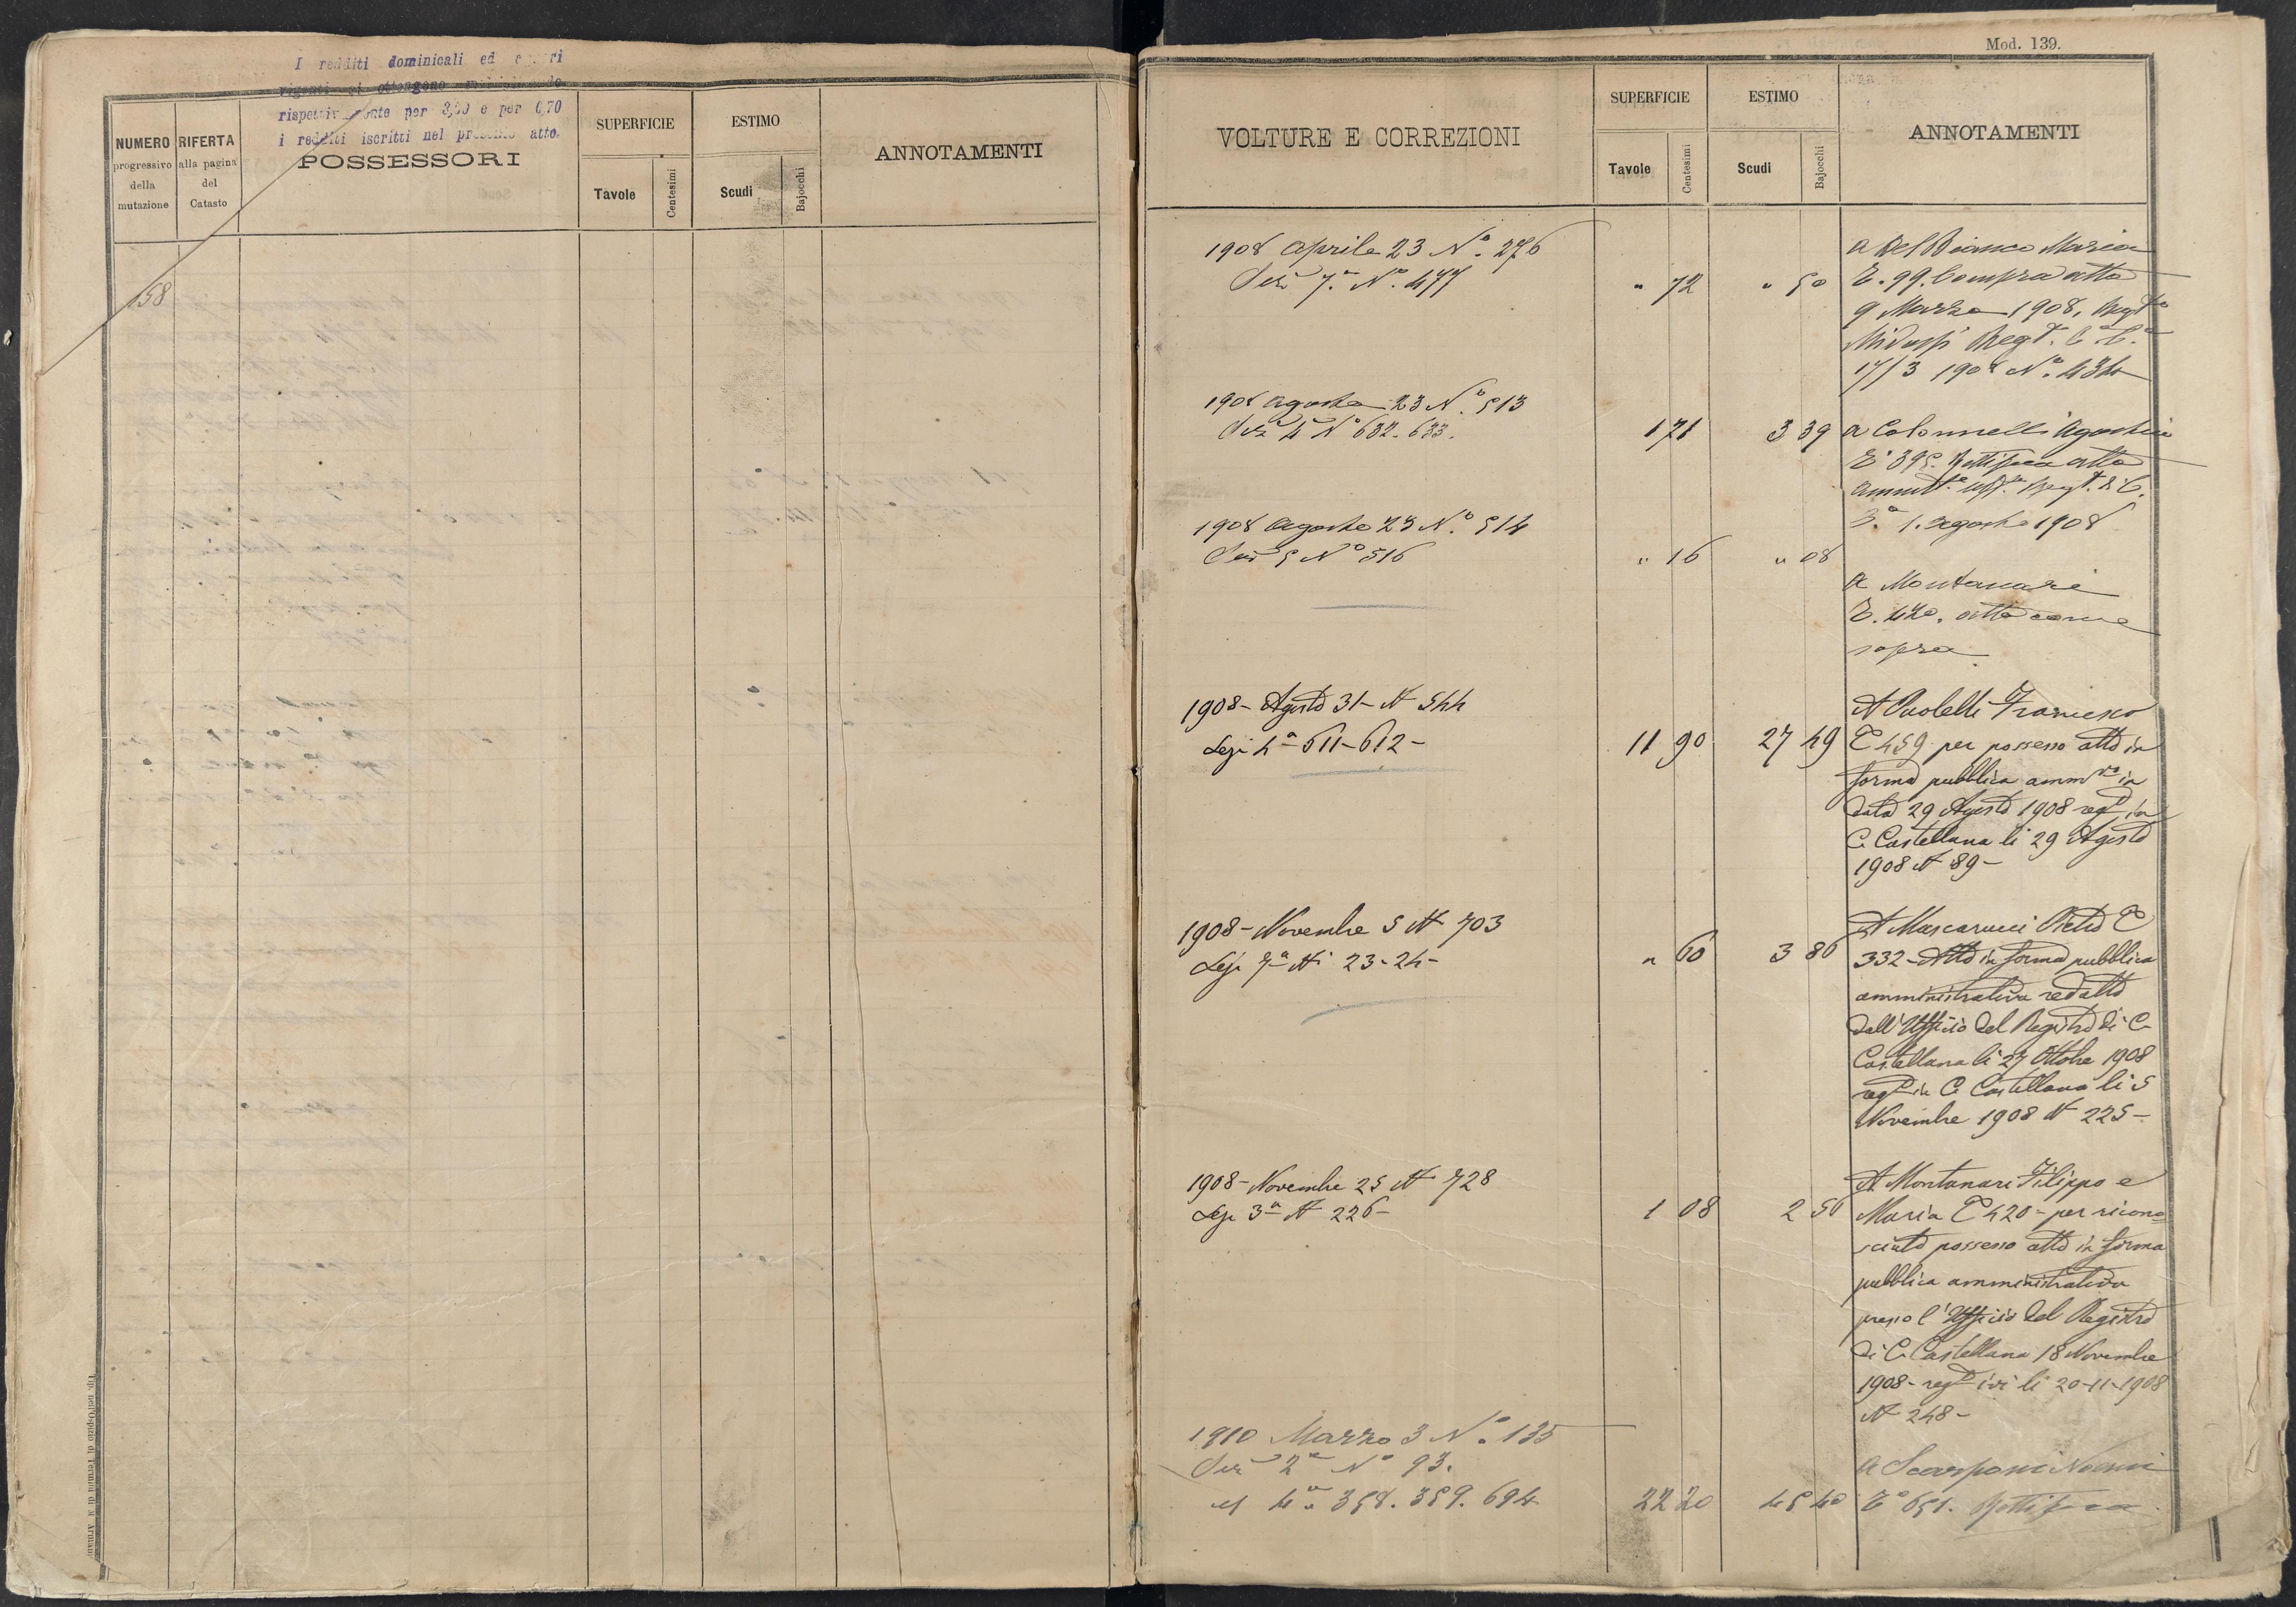 I redditi dominicali ed
rispettivamente per 3,60 e per 0,70
i redditi iscritti nel presente atto.
NUMERO progressivo della mutazione
RIFERTA alla pagina del Catasto
POSSESSORI
SUPERFICIE
Tavole
Centesimi
ESTIMO
Scudi
Bajocchi
ANNOTAMENTI
158
Mod. 139.
VOLTURE E CORREZIONI
SUPERFICIE
Tavole
Centesimi
ESTIMO
Scudi
Bajocchi
ANNOTAMENTI
1908 Aprile 23 Nº. 276
Sez 7.ª Nº. 477 " 72 " 50
a Del Bianco Maria
E. 99. Compra atto
9 Marzo 1908,
Regt. C. C.
17/3 1908 Nº. 434
1908 Agosto 23 Nº. 513
Sez 4ª Nº 632. 633. 1 71 3 39
a Colonnelli Agostino
E 395. Rettifica atto
1. Agosto 1908
1908 Agosto 23 Nº. 514
Sez 5 Nº 516 " 16 " 08
a Montanari
E. 420. atto come
sopra
1908 - Agosto 31 - N 544
Sez 4ª - 611 - 612 - 11 90 27 49
A Paolelli Francesco
E 459 per possesso atto in
forma pubblica amm.va in
data 29 Agosto 1908 regt in
C. Castellana li 29 Agosto
1908 N 89 -
1908 - Novembre 5 N 703
Sez 7ª Ni 23 - 24 - " 60 3 86
A Mascarucci Pietro E
332 - Atto in forma pubblica
amministrativa redatto
dall'Ufficio del Registro di C.
Castellana li 27 Ottobre 1908
regt in C. Castellana li 5
Novembre 1908 N 225 -
1908 - Novembre 25 N 728
Sez 3ª N 226 - 1 08 2 50
A Montanari Filippo e
Maria E 420 - per ricono
sciuto possesso atto in forma
pubblica amministrativa
presso l'Ufficio del Registro
di C. Castellana 18 Novembre
1908 - regt ivi li 20-11-1908
N 248 -
1910 Marzo 3 Nº. 135
Sez 2ª Nº 93.
4ª 358. 359. 694 22 20 45 40
a Scarponi Noemi
E 651. Rettifica